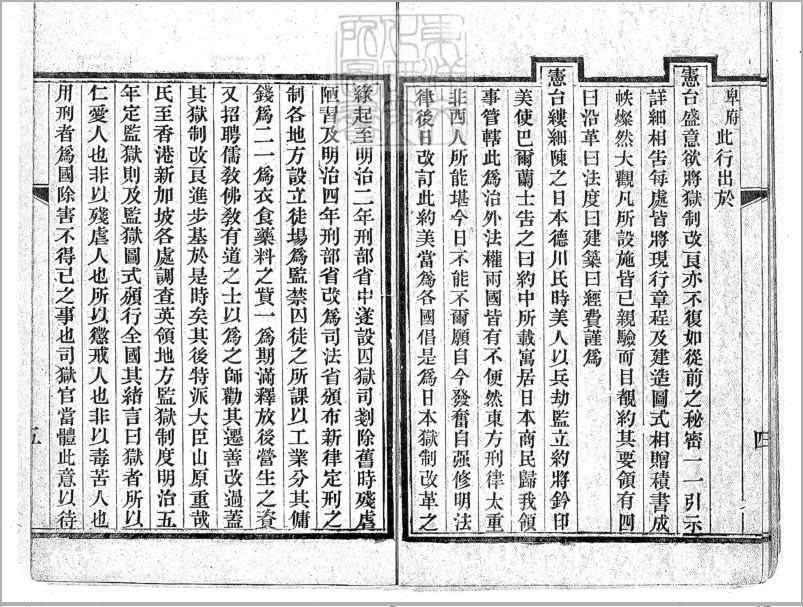 卑府此行出於
憲台盛意欲將獄制改良亦不復如從前之秘密一一引示
詳細相告每處皆將現行章程及建造圖式相贈積書成
帙燦然大觀凡所設施皆已親驗而目覩約其要領有四
曰沿革曰法度曰建築曰經費謹為
憲台縷細陳之日本德川氏時美人以兵劫監立約將鈐印
美使巴爾蘭士告之曰約中所載寓居日本商民歸我領
事管轄此為治外法權兩國皆有不便然東方刑律太重
非西人所能堪今日不能不爾願自今發奮自强修明法
律後日改訂此約美當為各國倡是為日本獄制改革之
四
緣起至明治二年刑部省中遂設囚獄司剗除舊時殘虐
陋習及明治四年刑部省改為司法省頒布新律定刑之
制各地方設立徒場為監禁囚徒之所課以工業分其傭
錢為二一為衣食藥料之費一為期滿釋放後營生之資
又招聘儒教佛教有道之士以為之師勸其遷善改過蓋
其獄制改良進步基於是時矣其後特派大臣山原重哉
氏至香港新加坡各處調查英領地方監獄制度明治五
年定監獄則及監獄圖式頒行全國其緒言曰獄者所以
仁愛人也非以殘虐人也所以懲戒人也非以毒苦人也
用刑者為國除害不得已之事也司獄官當體此意以待
五